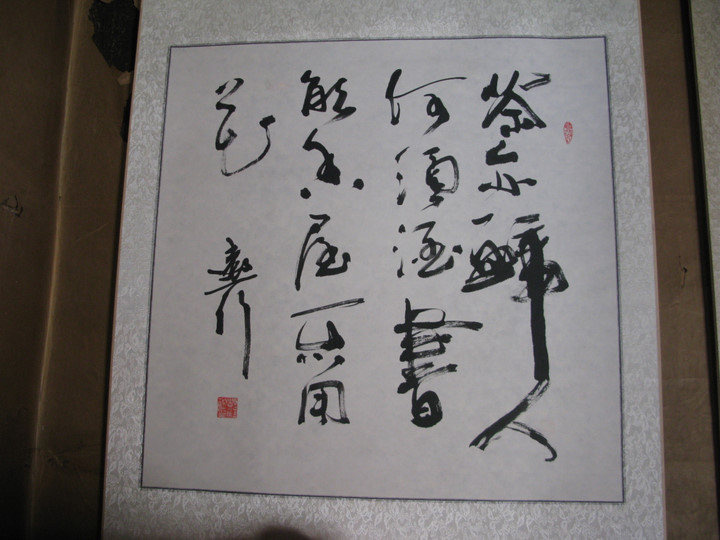 茶亦醉人
何須酒書
能香屋不用
花